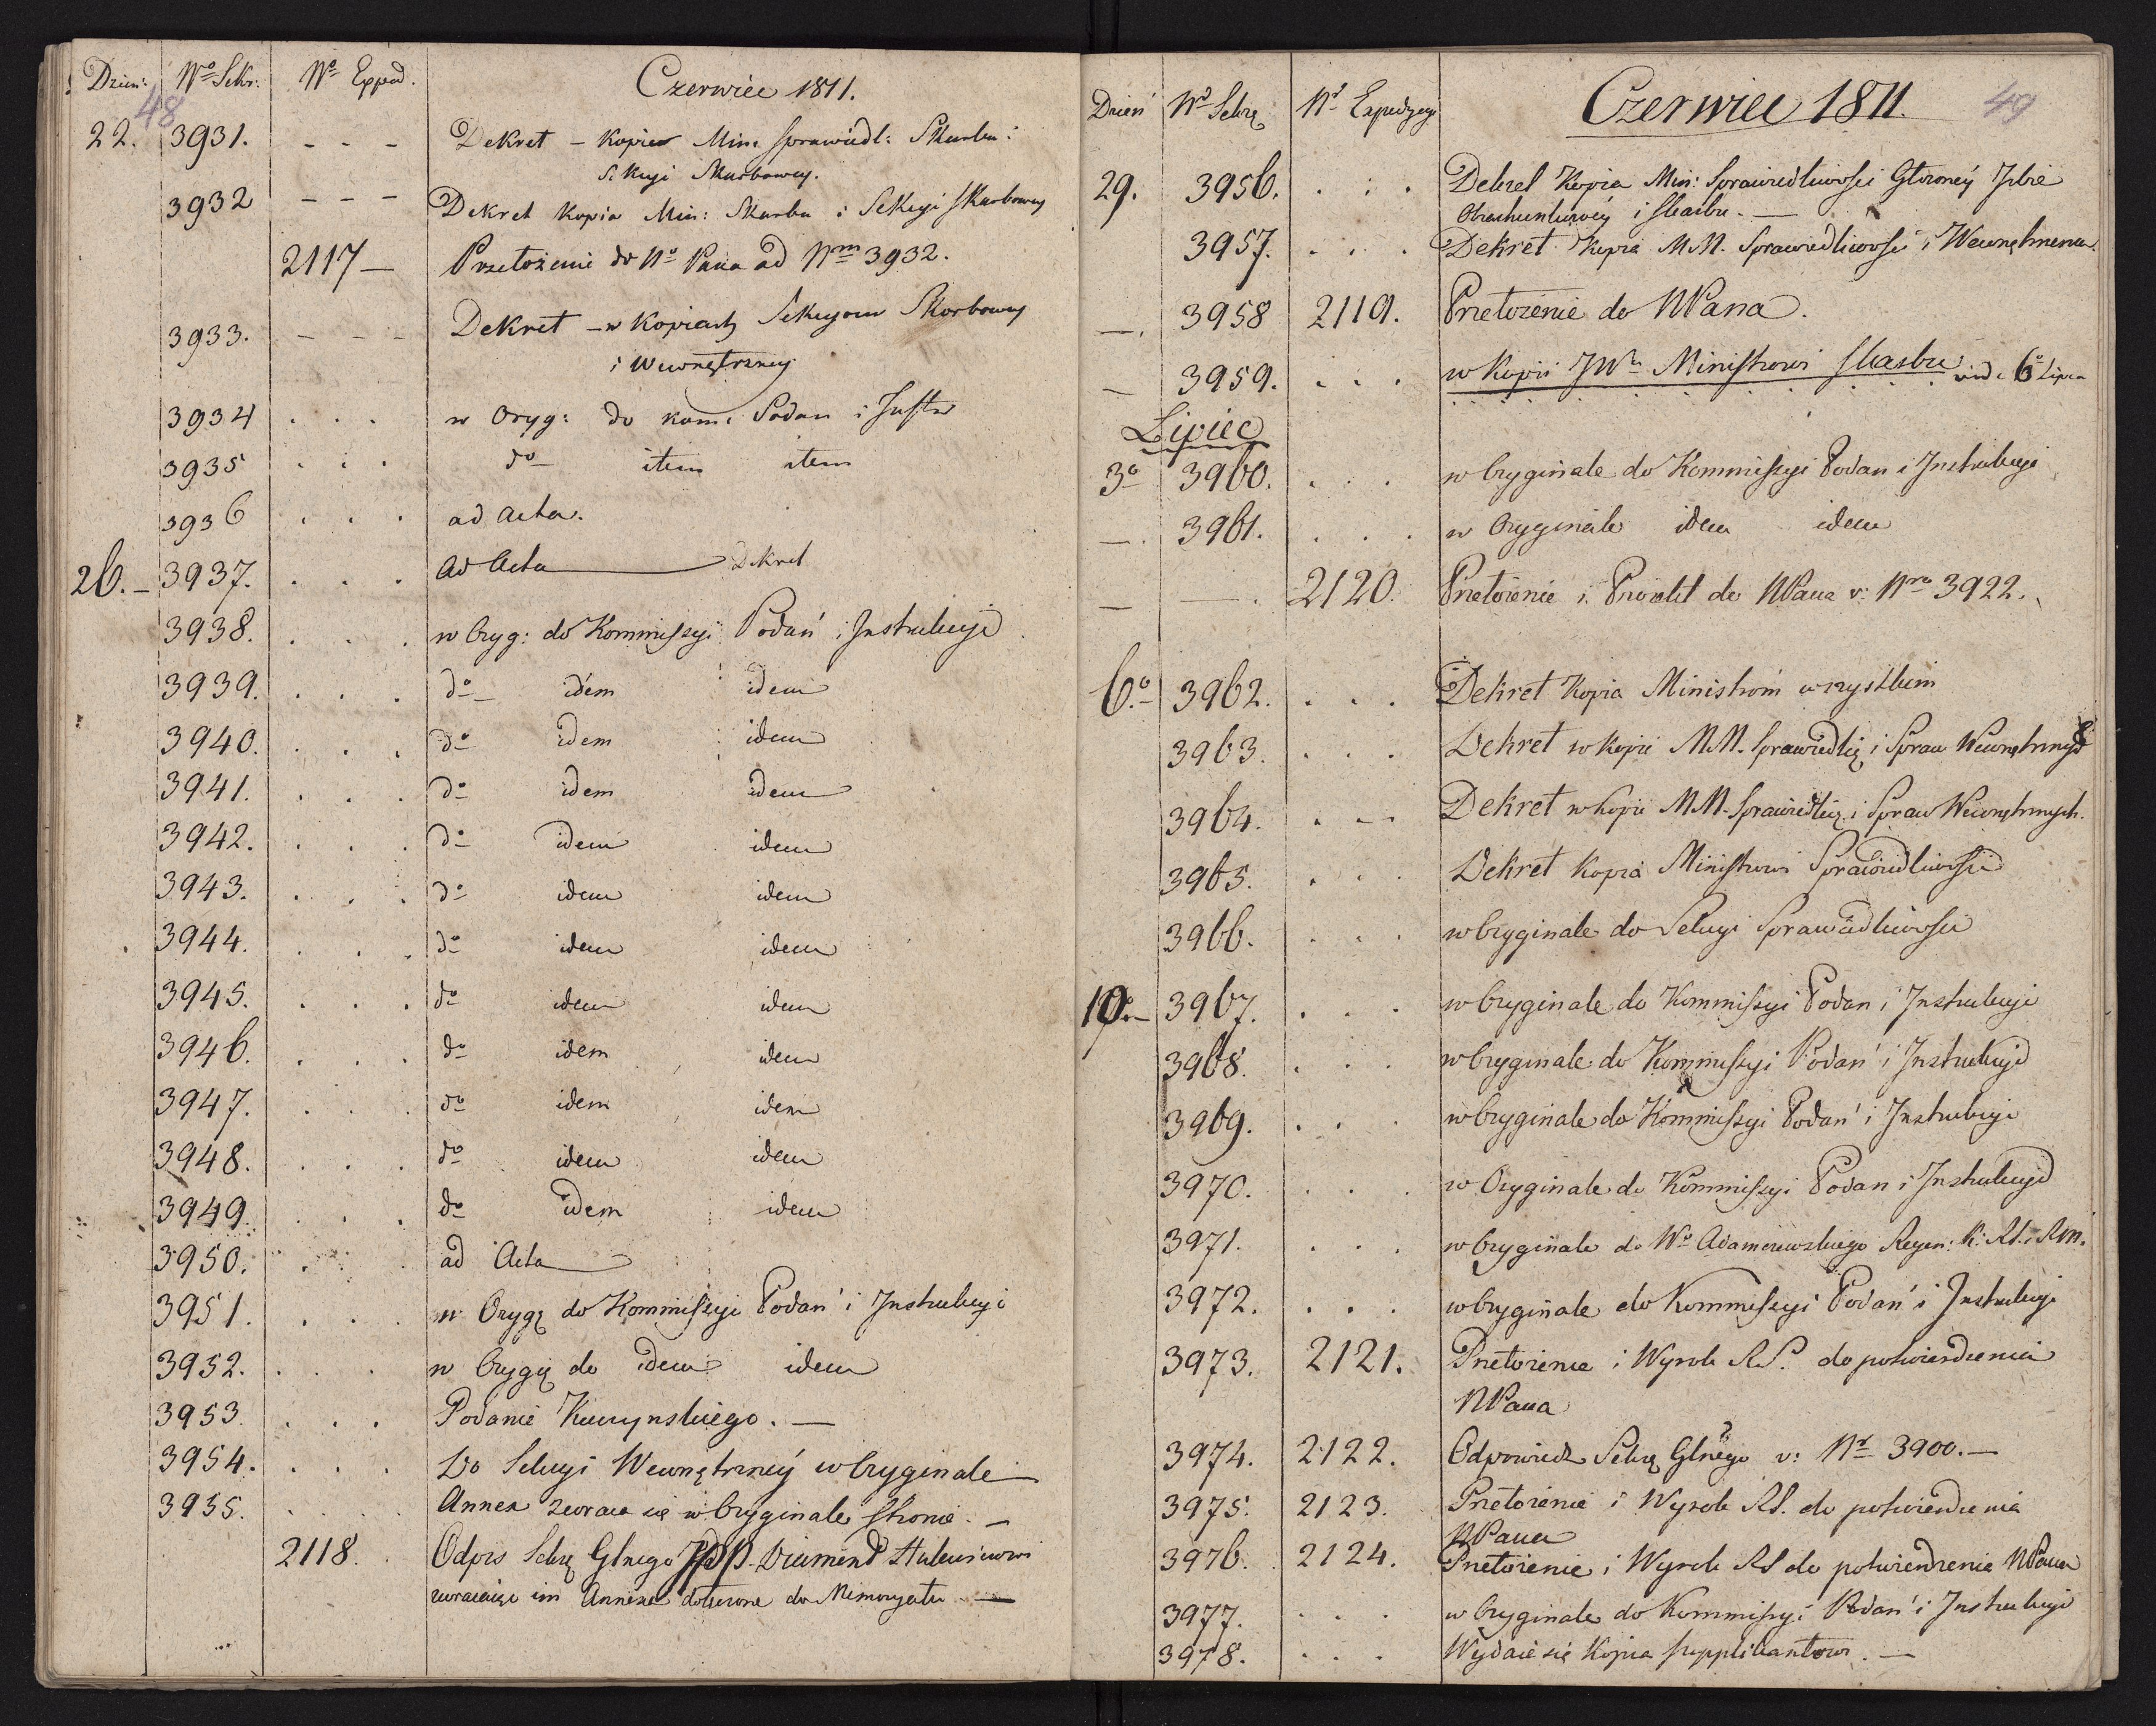 Dzień: Nº Sekr: Nº Expped. Czerwiec 1811.
48
22. 3931. - - - Dekret – Kopia Min: Sprawiedl: Skarbu:
Sekcyi Skarbowey.
3932 - - - Dekret Kopia Min: Skarbu i Sekcyi Skarbowey
2117 — Przełożenie do Nº Pana ad Nrm 3932.
3933. - - - Dekret – w Kopiach Sekcyom Skarbowey
i Wewnętrzney
3934 . . . w Oryg: do kom: Podan i Instr
3935 . . . dº item item
3936 . . . ad acta.
26. – 3937. . . . Ad Acta — Dekret
3938. . . . w Oryg: do Kommissyi Podań i Instrukcyi
3939. . . . dº idem idem
3940. . . . dº idem idem
3941. . . . dº idem idem
3942. . . . dº idem idem
3943. . . . dº idem idem
3944. . . . dº idem idem
3945. . . . dº idem idem
3946. . . . dº idem idem
3947. . . . dº idem idem
3948. . . . dº idem idem
3949. . . . dº idem idem
3950. . . . ad Acta
3951. . . . w Oryg do Kommissyi Podań i Instrukcyi
3952. . . . w Oryg do idem idem
3953. . . . Podanie Kuczynskiego. —
3954. . . . Do Sekcyi Wewnętrzney w Oryginale
3955. . . . Annexa zwraca się w Oryginale stronie. —
2118. Odpis Sekr Glnego JPP. Diament
zwracaiąc im Annexa dołączone do Memoryału —
Dzień Nº Sekr Nº Expedycyi Czerwiec 1811. 49
29. 3956. . . . Dekret Kopia Min: Sprawiedliwości Głowney Izbie
Obrachunkowey i Skarbu. —
3957. . . . Dekret Kopia MM. Sprawiedliwości i Wewnętrznemu.
—. 3958 2119. Przełożenie do NPana.
— 3959. . . . w Kopii JWu Ministrowi Skarbu vide 6º Lipca
Lipiec
3º 3960. . . . w Oryginale do Kommissyi Podan i Instrukcyi
—. 3961. . . . w Oryginale idem idem
— —. 2120. Przełożenie i Proiekt do NPana v: Nro 3922.
6.º 3962. . . . Dekret Kopia Ministrom wszystkim
3963. . . . Dekret w Kopii MM. Sprawiedli i Spraw Wewnętrznych
3964. . . . Dekret w Kopii MM. Sprawiedli i Spraw Wewnętrznych.
3965. . . . Dekret Kopia Ministrowi Sprawiedliwości
3966. . . . w Oryginale do Sekcyi Sprawiedliwości
10.º 3967. . . . w Oryginale do Kommissyi Podan i Instrukcyi
3968. . . . w Oryginale do Kommissyi Podań i Instrukcyi
3969. . . . w Oryginale do Kommissyi Podań i Instrukcyi
3970. . . . w Oryginale do Kommissyi Podan i Instrukcyi
3971. . . . w Oryginale do Wº Adamczewskiego Regen: K: RS. i RM.
3972. . . . w Oryginale do Kommissyi Podań i Instrukcyi
3973. 2121. Przełożenie i Wyrok RS. do potwierdzenia
NPana
3974. 2122. Odpowiedz Sekr Glnego v: Nr 3900. —
3975. 2123. Przełożenie i Wyrok RS. do potwierdzenia
NPana
3976. 2124. Przełożenie i Wyrok RS do potwierdzenia NPana
3977. . . . w Oryginale do Kommissyi Podań i Instrukcyi
3978. . . . Wydaie się Kopia supplikantowi. —